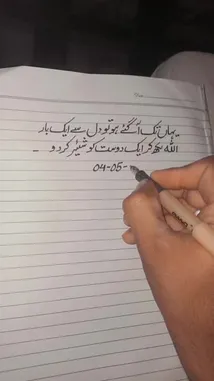 یہاں تک آ گئے ہو تو دل سے ایک بار
اللہ لکھ کر ایک دوست کو شیئر کر دو -
04-05-